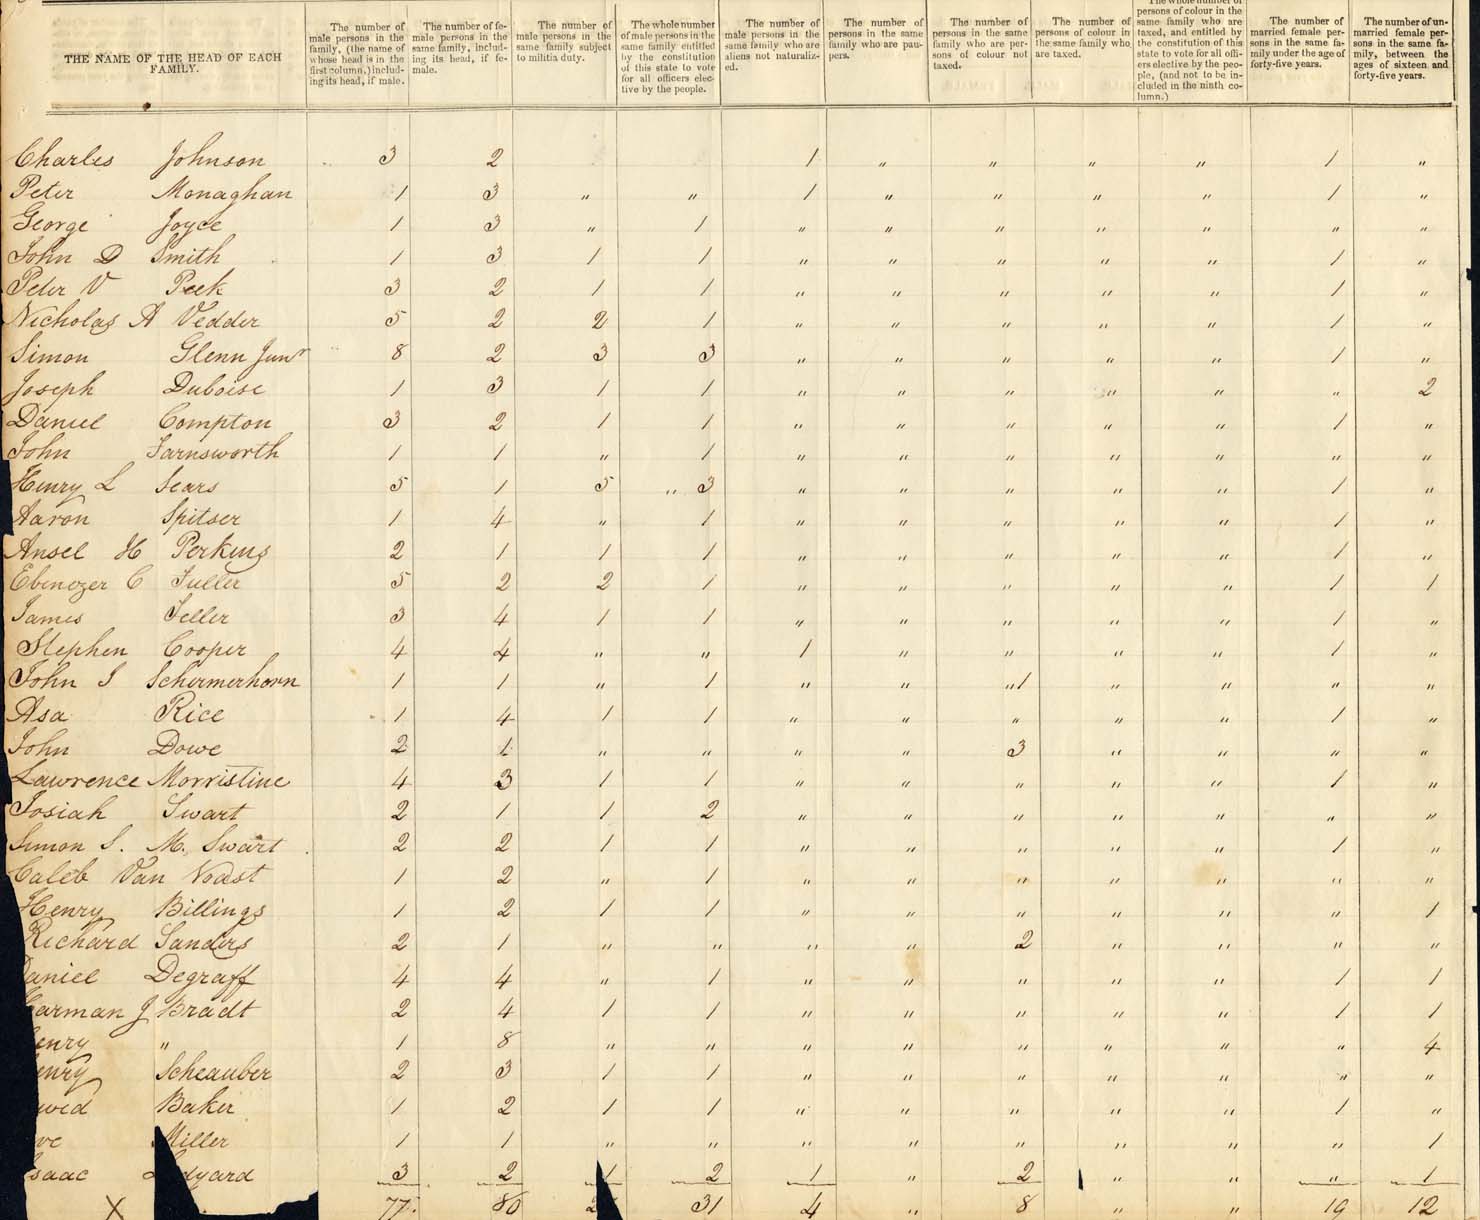 THE NAME OF THE HEAD OF EACH FAMILY. | The number of male persons in the family, (the name of whose head is in the first column,) including its head, if male. | The number of female persons in the same family, including its head, if female. | The number of male persons in the same family subject to militia duty. | The whole number of male persons in the same family entitled by the constitution of this state to vote for all officers elective by the people. | The number of male persons in the same family who are aliens not naturalized. | The number of persons in the same family who are paupers. | The number of persons in the same family who are persons of colour not taxed. | The number of persons of colour in the same family who are taxed. | The whole number of persons of colour in the same family who are taxed, and entitled by the constitution of this state to vote for all officers elective by the people, (and not to be included in the ninth column.) | The number of married female persons in the same family under the age of forty-five years. | The number of unmarried female persons in the same family, between the ages of sixteen and forty-five years.
Charles Johnson 3 2 1 " " " " 1 "
Peter Monaghan 1 3 " " 1 " " " " 1 "
George Joyce 1 3 " 1 " " " " " " "
John D Smith 1 3 1 1 " " " " " 1 "
Peter V Peek 3 2 1 1 " " " " " 1 "
Nicholas A Vedder 5 2 2 1 " " " " " 1 "
Simon Glenn Junr 8 2 3 3 " " " " " 1 "
Joseph Duboise 1 3 1 1 " " " " " " 2
Daniel Compton 3 2 1 1 " " " " " 1 "
John Farnsworth 1 1 " 1 " " " " " " "
Henry L Sears 5 1 5 " 3 " " " " " 1 "
Aaron Spitser 1 4 " 1 " " " " " 1 "
Ansel H Perkins 2 1 1 1 " " " " " 1 "
Ebenezer C Fuller 5 2 2 1 " " " " " 1 1
James Feller 3 4 1 1 " " " " " 1 "
Stephen Cooper 4 4 " " 1 " " " " 1 "
John I Schermerhorn 1 1 " 1 " " " 1 " " " "
Asa Rice 1 4 1 1 " " " " " 1 "
John Dowe 2 1 " " " " 3 " " " "
Lawrence Morristine 4 3 1 1 " " " " " 1 "
Josiah Swart 2 1 1 2 " " " " " " "
Simon S. M. Swart 2 2 1 1 " " " " " 1 "
Caleb Van Voast 1 2 " 1 " " " " " " "
Henry Billings 1 2 1 1 " " " " " " 1
Richard Sanders 2 1 " " " " 2 " " " "
aniel Degraff 4 4 " 1 " " " " " 1 1
arman J Bradt 2 4 1 1 " " " " " 1 1
enry " 1 8 " " " " " " " " 4
enry Scheauber 2 3 1 1 " " " " " " "
wid Baker 1 2 1 1 " " " " " 1 "
Miller 1 1 " " " " " " " " 1
saac dyard 3 2 1 2 1 " 2 " " " 1
X 77. 80 2 31 4 " 8 " " 19 12